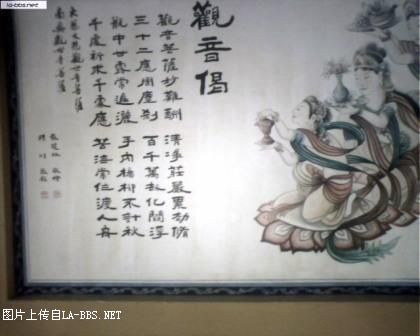 la-bbs.net
觀音偈
觀音菩薩妙難酬 清淨莊嚴累劫修
三十二應周塵剎 百千萬劫化閻浮
瓶中甘露常遍灑 手內楊柳不計秋
千處祈求千處應 苦海常作渡人舟
大慈大悲觀世音菩薩
南無觀世音菩薩
图片上传自LA-BBS.NET